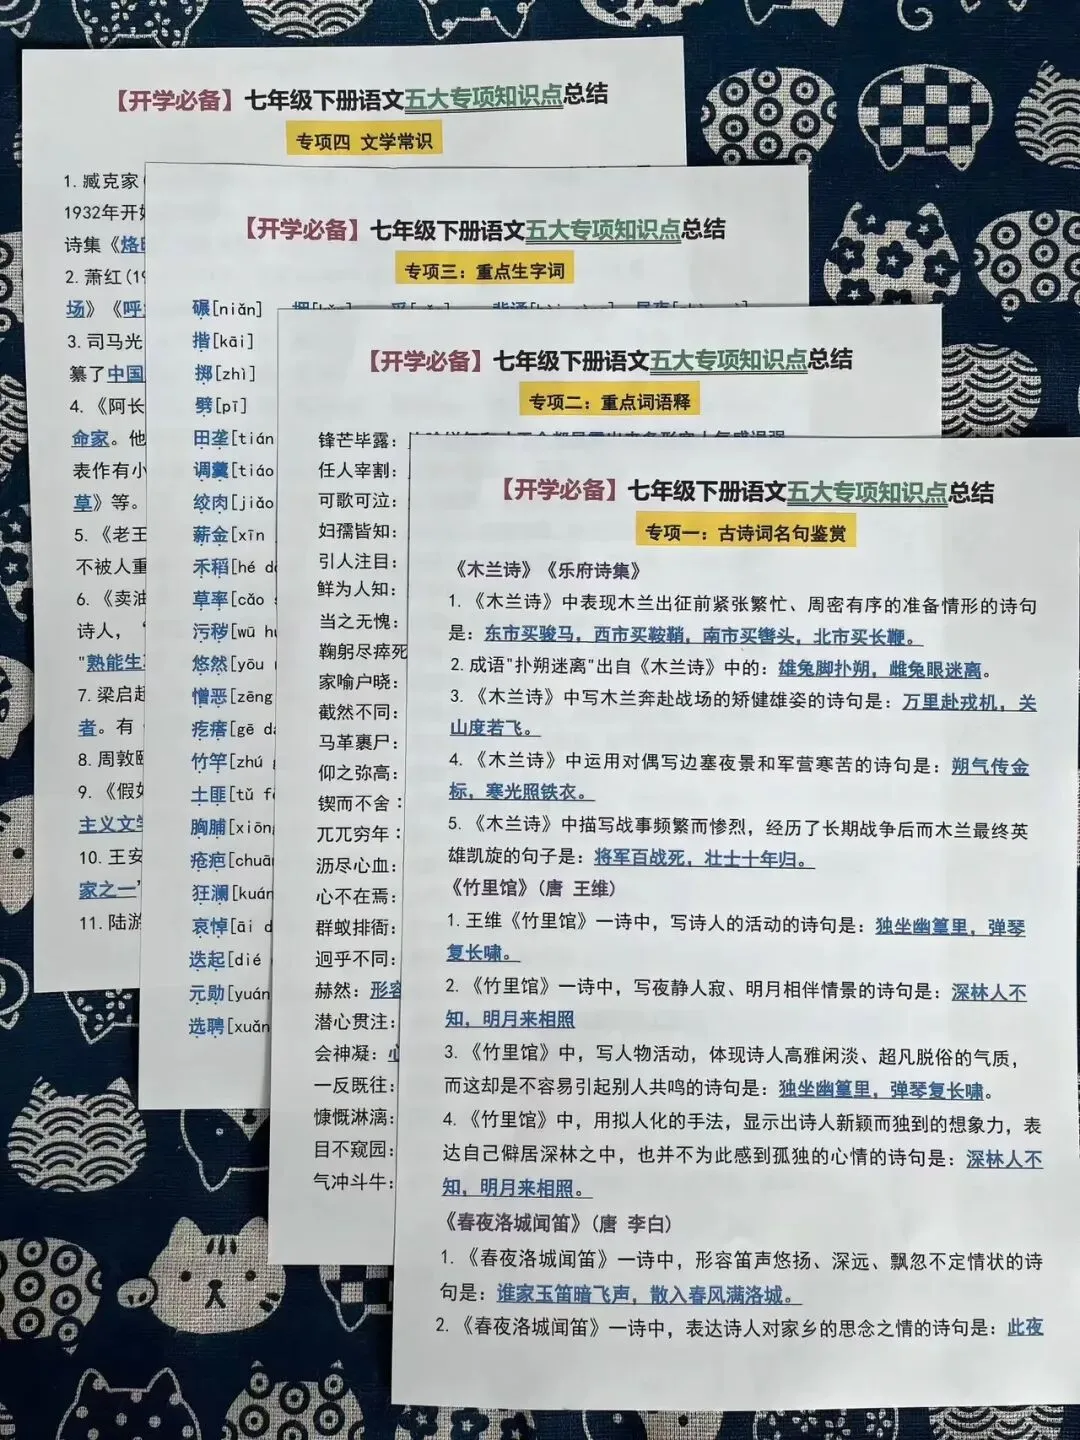 【开学必备】七年级下册语文五大专项知识点总结
专项四 文学常识
1. 臧克家
1932年开
诗集《烙
2. 萧红(19
场》《呼
3. 司马光
纂了中国
4. 《阿长
命家。他
表作有小
草》等。
5. 《老王
不被人重
6. 《卖油
诗人，
"熟能生
7. 梁启超
者。有
8. 周敦颐
9. 《假如
主义文学
10. 王安
家之一
11. 陆游
【开学必备】七年级下册语文五大专项知识点总结
专项三：重点生字词
碾[niǎn]
揩[kāi]
掷[zhì]
劈[pī]
田垄[tián
调羹[tiáo
绞肉[jiǎo
薪金[xīn
禾稻[hé
草率[cǎo
污秽[wū
悠然[yōu
憎恶[zēng
疙瘩[gē
竹竿[zhú
土匪[tǔ
胸脯[xiōng
疮疤[chuā
狂澜[kuán
哀悼[āi d
迭起[dié
元勋[yuán
选聘[xuǎn
【开学必备】七年级下册语文五大专项知识点总结
专项二：重点词语释
锋芒毕露：
任人宰割：
可歌可泣：
妇孺皆知：
引人注目：
鲜为人知：
当之无愧：
鞠躬尽瘁死
家喻户晓：
截然不同：
马革裹尸：
仰之弥高：
锲而不舍：
兀兀穷年：
沥尽心血：
心不在焉：
群蚁排衙：
迥乎不同：
赫然：形容
潜心贯注：
会神凝：心
一反既往：
慷慨淋漓：
目不窥园：
气冲斗牛：
【开学必备】七年级下册语文五大专项知识点总结
专项一：古诗词名句鉴赏
《木兰诗》《乐府诗集》
1. 《木兰诗》中表现木兰出征前紧张繁忙、周密有序的准备情形的诗句
是：东市买骏马，西市买鞍鞯，南市买辔头，北市买长鞭。
2. 成语"扑朔迷离"出自《木兰诗》中的：雄兔脚扑朔，雌兔眼迷离。
3. 《木兰诗》中写木兰奔赴战场的矫健雄姿的诗句是：万里赴戎机，关
山度若飞。
4. 《木兰诗》中运用对偶写边塞夜景和军营寒苦的诗句是：朔气传金
标，寒光照铁衣。
5. 《木兰诗》中描写战事频繁而惨烈，经历了长期战争后而木兰最终英
雄凯旋的句子是：将军百战死，壮士十年归。
《竹里馆》(唐 王维)
1. 王维《竹里馆》一诗中，写诗人的活动的诗句是：独坐幽篁里，弹琴
复长啸。
2. 《竹里馆》一诗中，写夜静人寂、明月相伴情景的诗句是：深林人不
知，明月来相照
3. 《竹里馆》中，写人物活动，体现诗人高雅闲淡、超凡脱俗的气质，
而这却是不容易引起别人共鸣的诗句是：独坐幽篁里，弹琴复长啸。
4. 《竹里馆》中，用拟人化的手法，显示出诗人新颖而独到的想象力，表
达自己僻居深林之中，也并不为此感到孤独的心情的诗句是：深林人不
知，明月来相照。
《春夜洛城闻笛》(唐 李白)
1. 《春夜洛城闻笛》一诗中，形容笛声悠扬、深远、飘忽不定情状的诗
句是：谁家玉笛暗飞声，散入春风满洛城。
2. 《春夜洛城闻笛》一诗中，表达诗人对家乡的思念之情的诗句是：此夜